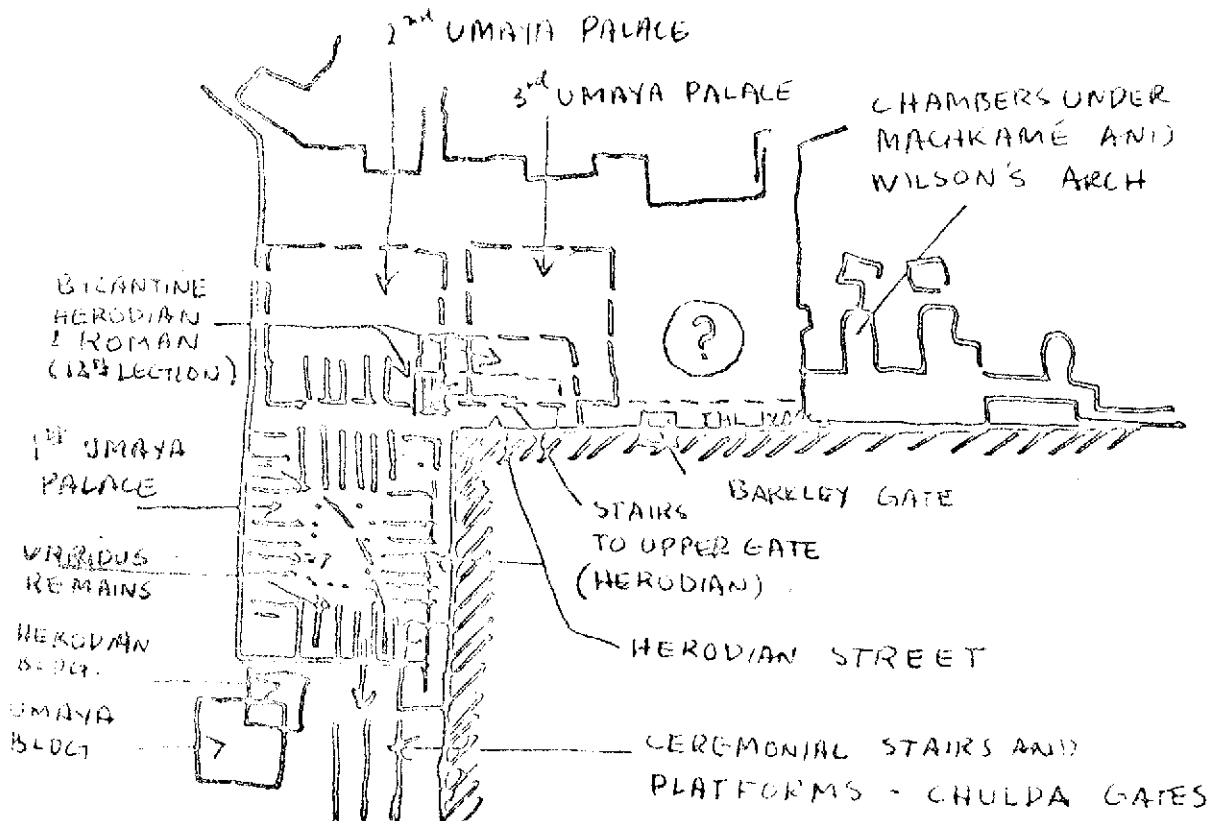 2nd UMAYA PALACE
3rd UMAYA PALACE
CHAMBERS UNDER
MACHKAMÉ AND
WILSON'S ARCH
BICANTINE
HERODIAN
& ROMAN
?
1st UMAYA
PALACE
BARKLEY GATE
STAIRS
TO UPPER GATE
(HERODIAN)
VARIOUS
REMAINS
HERODIAN
BLDG.
HERODIAN STREET
UMAYA
BLDG
CEREMONIAL STAIRS AND
PLATFORMS - CHULDA GATES